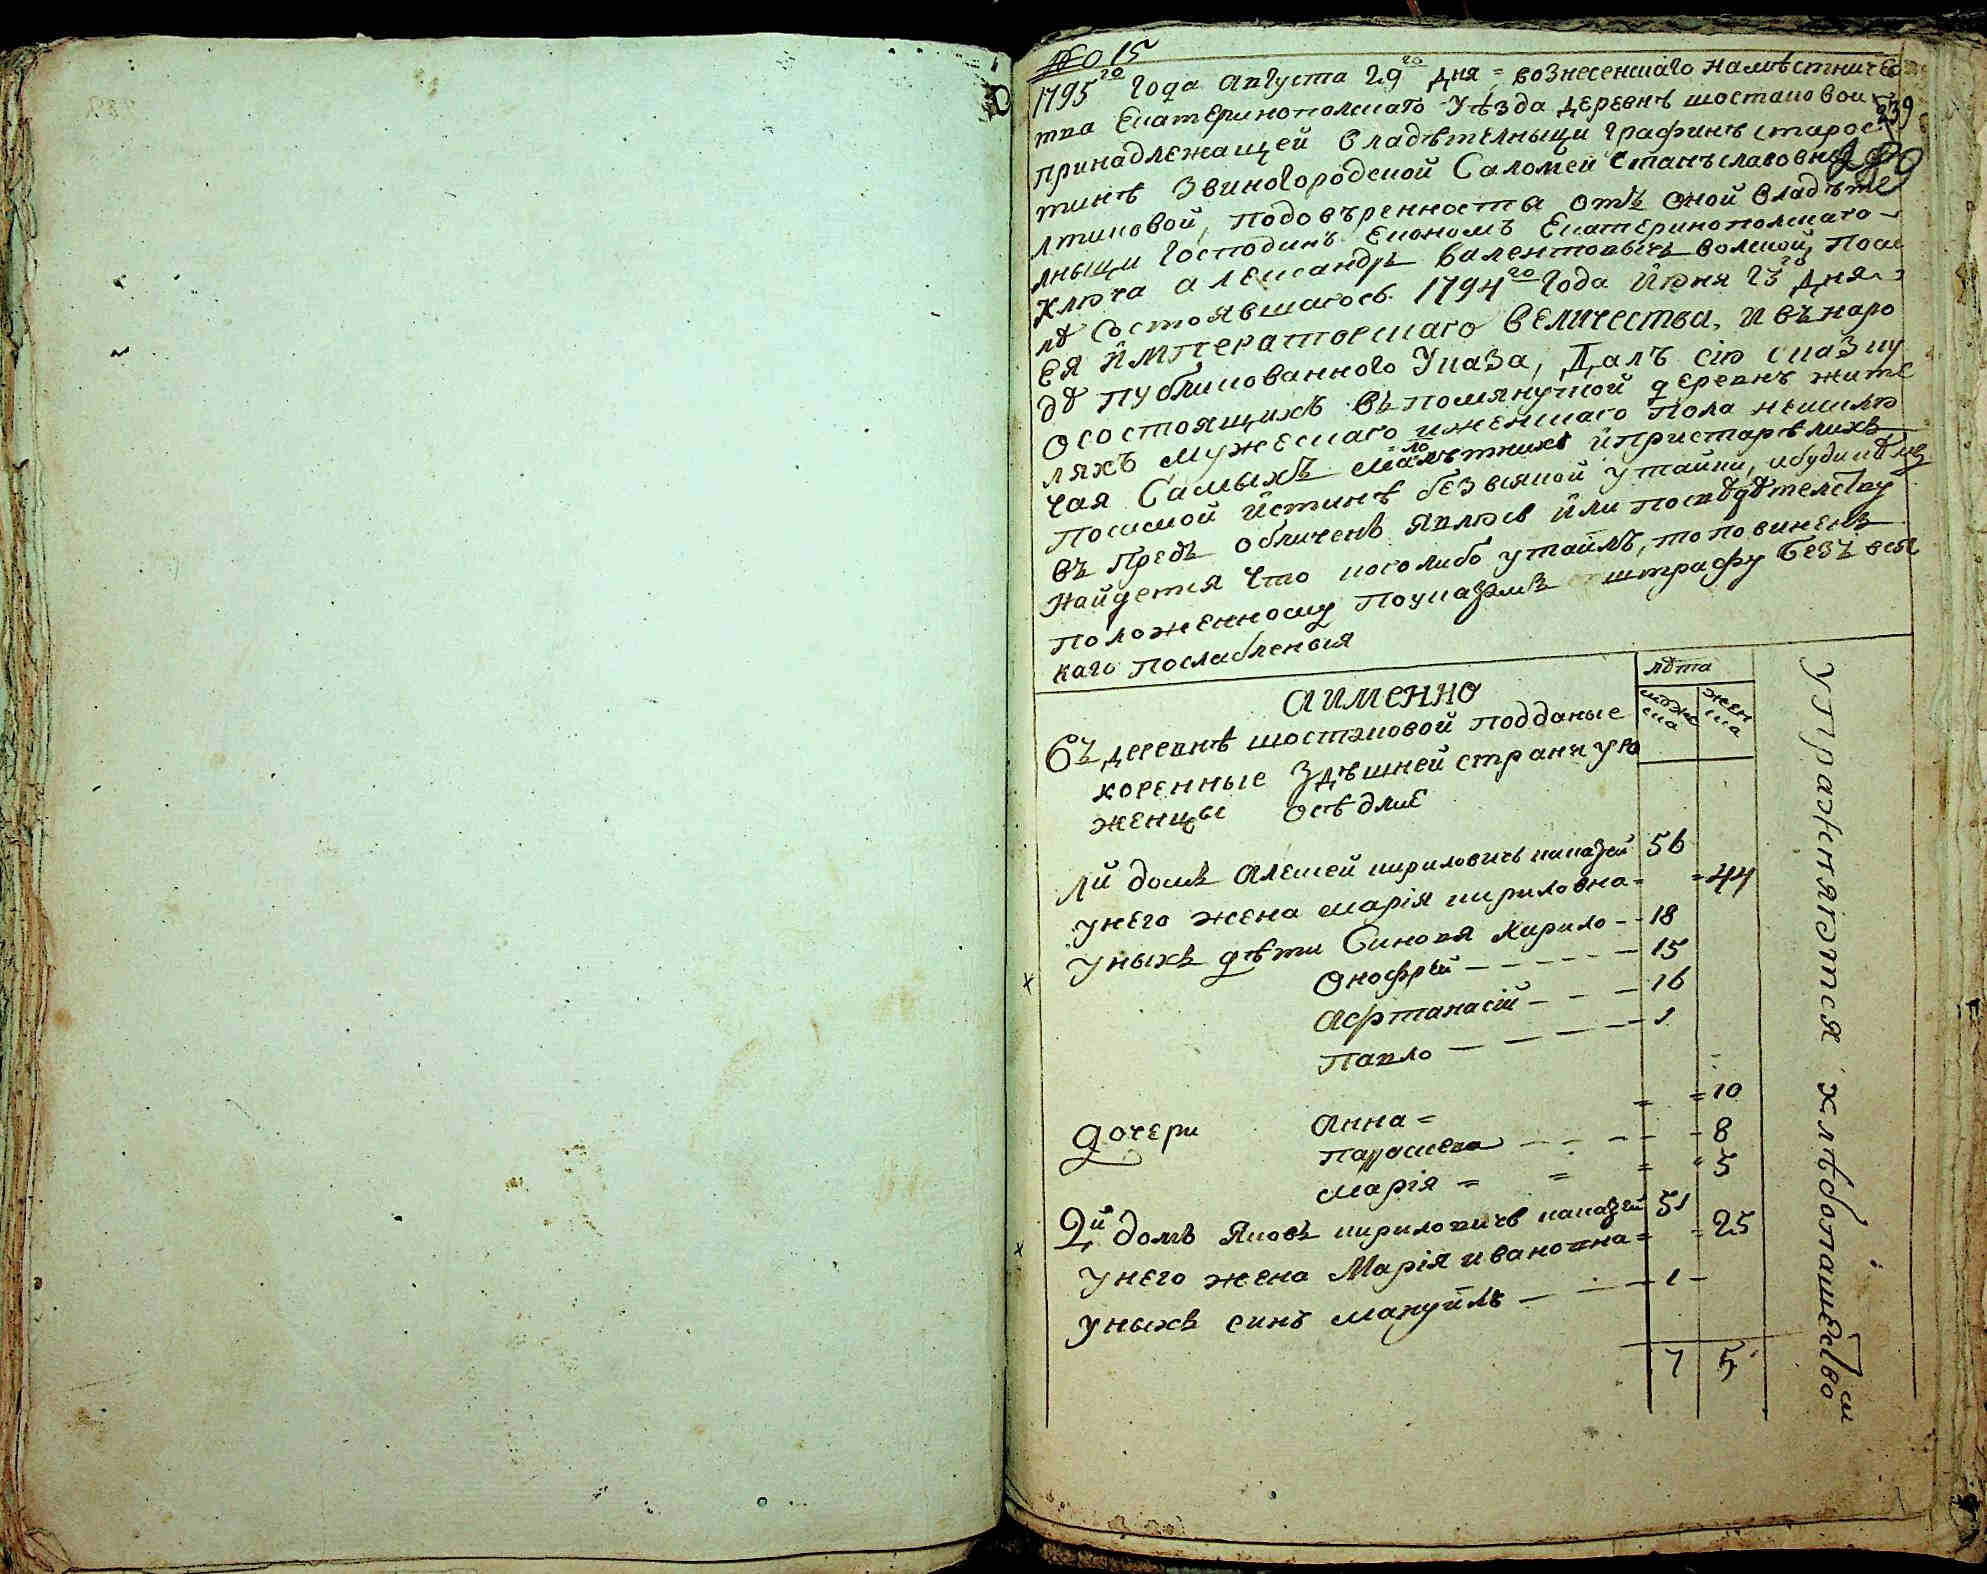 № 15
1795го года августа 29го дня вознесенскаго наместничес
тва Екатеринополскаго уѣзда деревнѣ шостаковои
239
принадлежащей владѣтелныци графинѣ старос
тинѣ Звиногородской Саломеи Станѣславовной
лтиковой, подовѣренности отъ оной владѣте
лныци Господинъ Економъ Екатеринополскаго
ключа александръ валентовичъ волской, после
состоявшагось 1794го года июня 23го дня
ея императорскаго величества, и въ наро
дѣ публикованного Указа, Далъ сію сказку
осостоящихъ въпомянутой деревнѣ жите
ляхъ мужескаго иженскаго пола неисклю
чая Самыхъ малолѣтнихъ ипристарѣлихъ
посамой истинѣ безвсякой утайки, ибуди
въ предъ обличенъ явлюсь или посвѣдѣтелству
найдется что коголибо утаилъ, то повиненъ
положенному поуказамъ штрафу безъ вся
каго послабленыя
аименно
лѣта
мужеска
женска
Въ деревнѣ шостаковой подданые
коренные здѣшней странѣ ую
женцы осѣдлие
1й домъ алексей кириловичъ каказей 56
унего жена марія кириловна = 44
уныхъ дѣти Синовя Кирило 18
Онофрій 15
Афтанасій 16
Павло 1
дочери Анна = 10
параскева 8
марія = 5
2й домъ Яковъ кириловичъ каказей 51
унего жена Марія ивановна = 25
уныхъ синъ мануилъ 1
7 5
Упражняются клѣбопашество